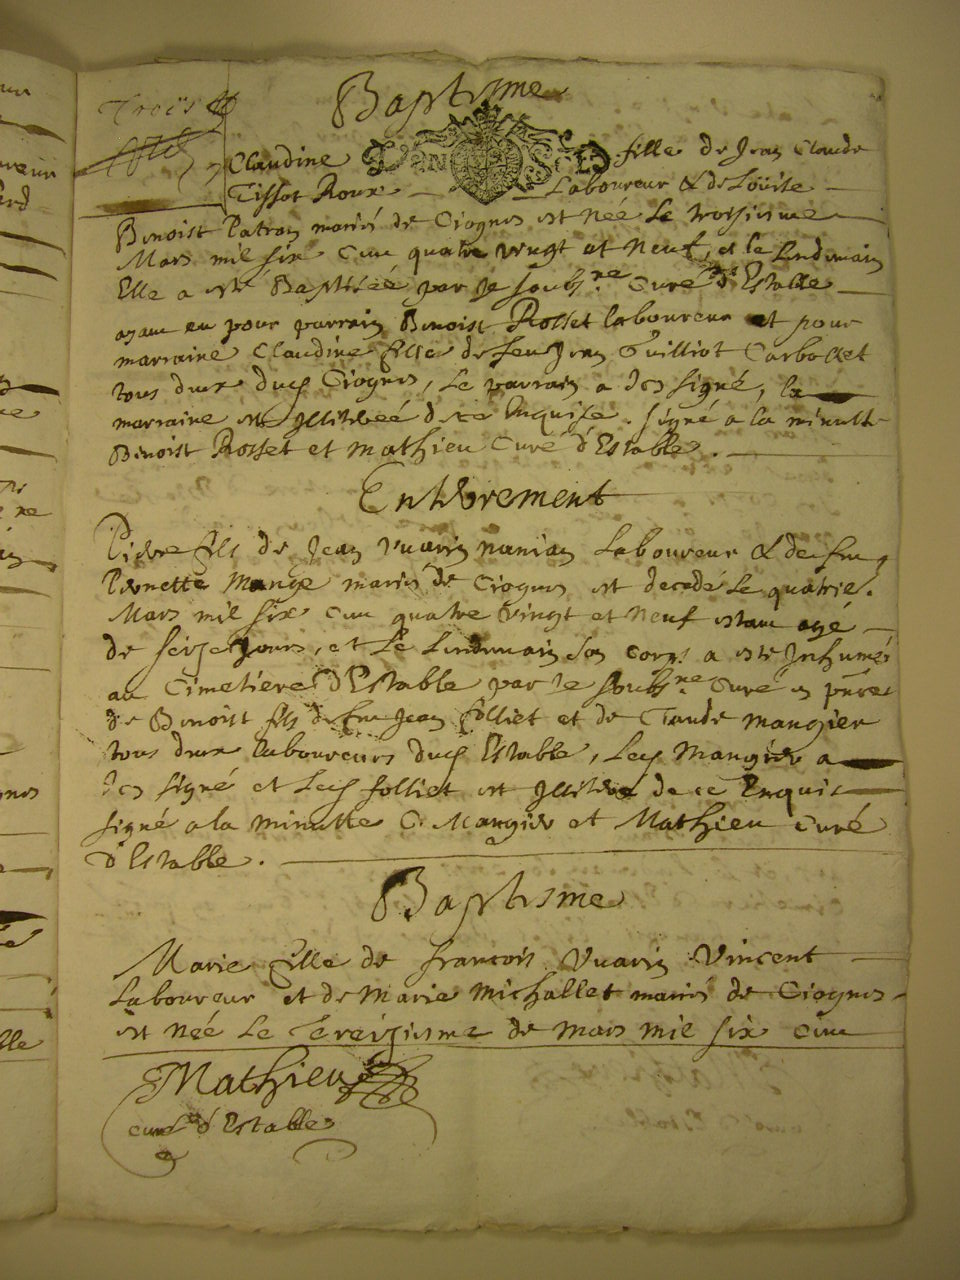 Baptisme
Trois
Claudine fille de Jean Claude
Tissot Roux Laboureur & de Loüise
Benoist Patron mariés de Ciognes est née Le troisiesme
Mars mil six cens quatre vingt et neuf, et le Lendemain
Elle a esté Baptisée par Je soubs.ne Curé d'Estable
ayant eu pour parrain Benoist Rosset laboureur et pour
marraine Claudine fille de feu Jean Guilliot Carbollet
tous deux dud Ciognes, Le parrain a Ici signé, la
marraine est Illiterée de ce Enquise. signé a la minutte
Benoist Rosset et Mathieu Curé d'Estable.
Enterrement
Pierre fils de Jean Vuarin nanian Laboureur & de feu
Pernette Mange mariés de Ciognes est decedé Le quatrie.
Mars mil six cens quatre Vingt et Neuf estant agé
de seize Jours, et Le Lendemain son corps a esté Inhumé
au Cimetiere d'Estable par Je soubs.ne Curé en
de Benoist fils de feu Jean folliet et de Claude mangier
tous deux Laboureurs dud Estable, Led Mangier a
Ici signé et Led folliet est Illiteré de ce Enquis
signé a la minutte C. Mangier et Mathieu curé
d'Estable.
Baptisme
Marie fille de françois Vuarin Vincent
Laboureur et de Marie Michallet mariés de Ciognes
est Née Le Treiziesme de Mars mil six cens
Mathieu
curé d'Estable